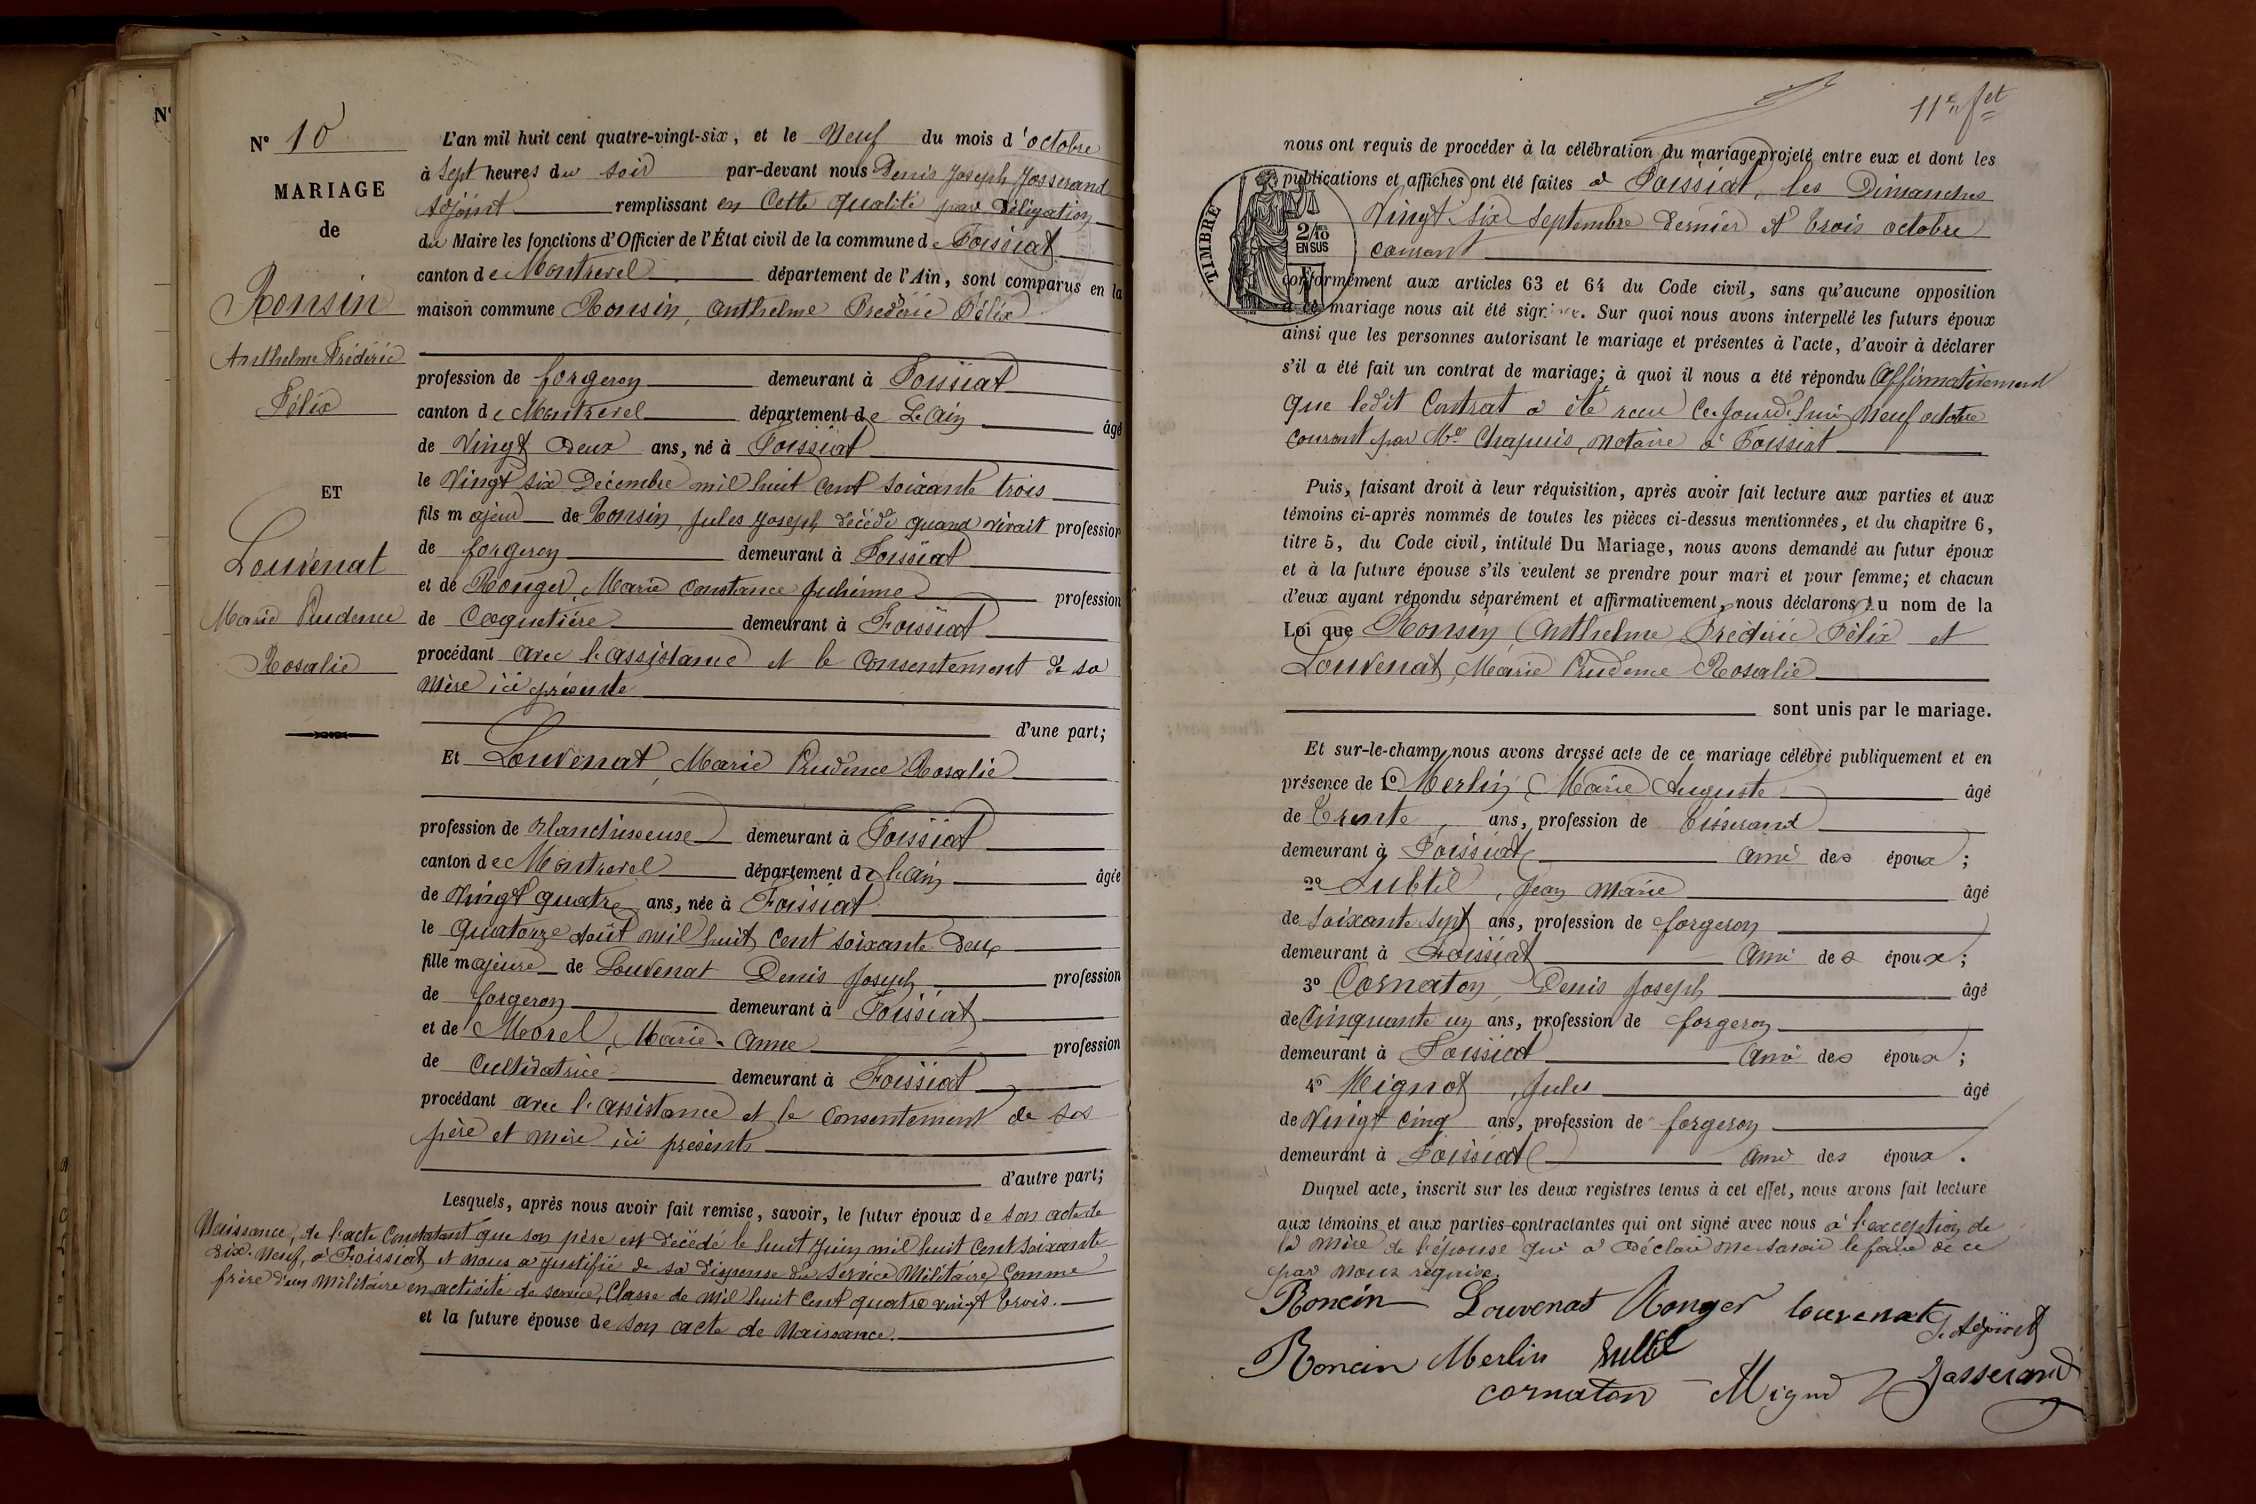 N°
N° 10
MARIAGE
de
Ronsin
Anthelme Frédéric
Félix
ET
Louvenat
Marie Prudence
Rosalie
L'an mil huit cent quatre-vingt-six, et le Neuf du mois d'octobre
à Sept heures du soir par-devant nous Denis Joseph Josserand
Adjoint remplissant en Cette qualité par Délégation
du Maire les fonctions d'Officier de l'État civil de la commune de Foissiat
canton de Montrevel département de l'Ain, sont comparus en la
maison commune Ronsin, Anthelme Frédéric Félix
profession de forgeron demeurant à Foissiat
canton de Montrevel département de L'Ain âgé
de Vingt Deux ans, né à Foissiat
le Vingt six Décembre mil huit cent soixante trois
fils majeur de Ronsin, Jules Joseph décédé quand vivait profession
de forgeron demeurant à Foissiat
et de Ronger, Marie Constance profession
de Coquetière demeurant à Foissiat
procédant avec l'assistance et le consentement de sa
mère ici présente
d'une part;
Et Louvenat, Marie Prudence Rosalie
profession de blanchisseuse demeurant à Foissiat
canton de Montrevel département de l'Ain âgée
de Vingt quatre ans, née à Foissiat
le Quatorze Août mil huit cent soixante Deux
fille majeure de Louvenat Denis Joseph profession
de forgeron demeurant à Foissiat
et de Morel, Marie-Anne profession
de Cultivatrice demeurant à Foissiat
procédant avec l'assistance et le consentement de ses
père et mère ici présents
d'autre part;
Lesquels, après nous avoir fait remise, savoir, le futur époux de son acte de
Naissance, de l'acte Constatant que son père est décédé le huit Juin mil huit Cent soixante
dix-Neuf, à Foissiat et nous a justifié de sa dispense du service Militaire, Comme
frère d'un Militaire en activité de service, Classe de Mil huit Cent quatre vingt trois.
et la future épouse de son acte de Naissance.
11e fet
nous ont requis de procéder à la célébration du mariage projeté entre eux et dont les
publications et affiches ont été faites à Foissiat, les Dimanches
Vingt six septembre dernier et trois octobre
courant
TIMBRE
2/10
EN SUS
conformément aux articles 63 et 64 du Code civil, sans qu'aucune opposition
à ce mariage nous ait été signifiée. Sur quoi nous avons interpellé les futurs époux
ainsi que les personnes autorisant le mariage et présentes à l'acte, d'avoir à déclarer
s'il a été fait un contrat de mariage; à quoi il nous a été répondu Affirmativement
que ledit Contrat a été reçu Ce Jourd'hui Neuf octobre
courant par Me Chapuis, notaire à Foissiat
Puis, faisant droit à leur réquisition, après avoir fait lecture aux parties et aux
témoins ci-après nommés de toutes les pièces ci-dessus mentionnées, et du chapitre 6,
titre 5, du Code civil, intitulé Du Mariage, nous avons demandé au futur époux
et à la future épouse s'ils veulent se prendre pour mari et pour femme; et chacun
d'eux ayant répondu séparément et affirmativement, nous déclarons au nom de la
Loi que Ronsin Anthelme Frédéric Félix et
Louvenat, Marie Prudence Rosalie
sont unis par le mariage.
Et sur-le-champ, nous avons dressé acte de ce mariage célébré publiquement et en
présence de 1° Merlin, Marie Auguste âgé
de Trente ans, profession de Tisserand
demeurant à Foissiat ami des époux;
2° Subtil, Jean Marie âgé
de soixante sept ans, profession de forgeron
demeurant à Foissiat Ami des époux;
3° Cornaton, Denis Joseph âgé
de Cinquante un ans, profession de forgeron
demeurant à Foissiat Ami des époux;
4° Mignot, Jules âgé
de Vingt cinq ans, profession de forgeron
demeurant à Foissiat Ami des époux.
Duquel acte, inscrit sur les deux registres tenus à cet effet, nous avons fait lecture
aux témoins et aux parties contractantes qui ont signé avec nous à l'exception de
la mère de l'épouse qui a Déclaré ne savoir le faire de ce
par nous requise.
Roncin Louvenat Ronger louvenat L'adjoint
Roncin Merlin Subtil Josserand
cornaton Mignot